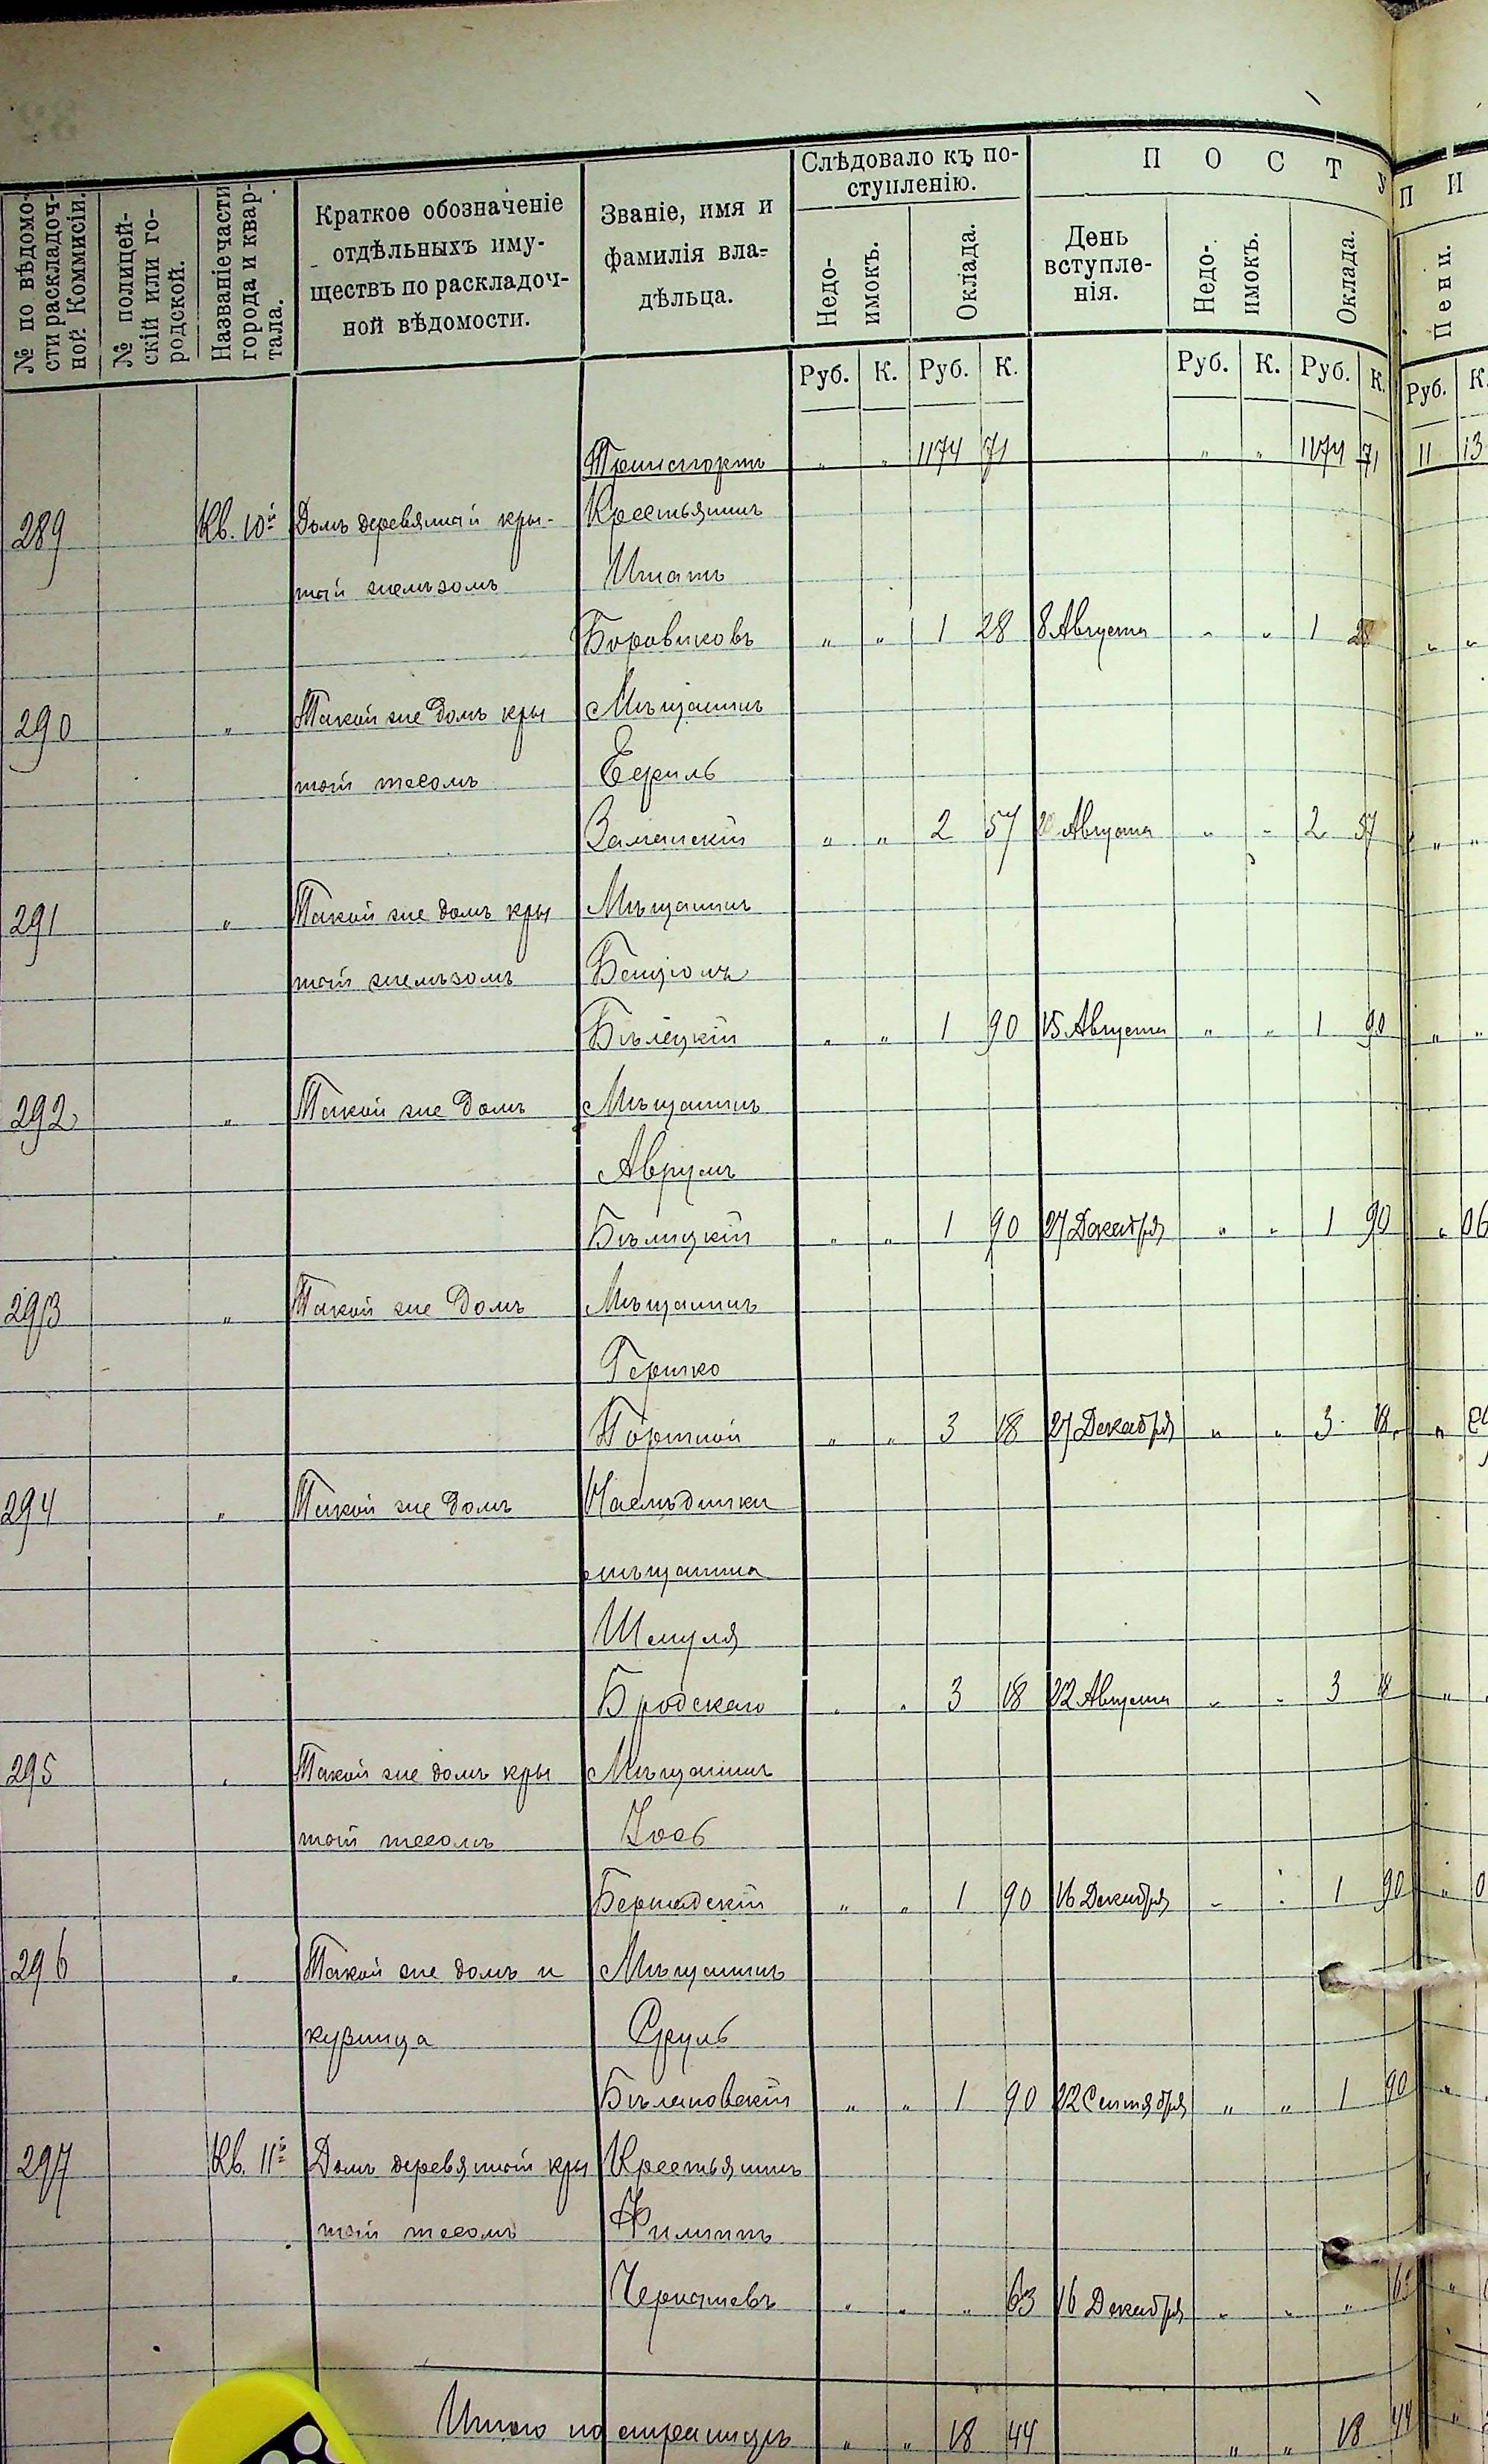 № по вѣдомо-
сти раскладоч-
ной Коммисіи.
№ полицей-
скій или го-
родской.
Названіе части
города и квар-
тала.
Краткое обозначеніе
отдѣльныхъ иму-
ществъ по раскладоч-
ной вѣдомости.
Званіе, имя и
фамилія вла-
дѣльца.
Слѣдовало къ по-
ступленію.
Недо-
имокъ.
Оклада.
П О С Т У П И
День
вступле-
нія.
Недо-
имокъ.
Оклада.
Пени.
Руб. К. Руб. К. Руб. К. Руб. К. Руб. К.
Транспортъ " " 1174 71 " " 1174 71 11 13
289 Кв. 10й Домъ деревянный кры- Крестьянинъ
тый желѣзомъ Игнатъ
Боровиковъ " " 1 28 8 Августа " " 1 28 " "
290 " Такой же домъ кры Мѣщанинъ
тый тесомъ Сруль
Заманскій " " 2 57 Августа " " 2 57 " "
291 " Такой же домъ кры Мѣщанинъ
тый желѣзомъ Бенціонъ
Бѣлецкій " " 1 90 15 Августа " " 1 90 " "
292 " Такой же домъ Мѣщанинъ
Аврумъ
Бѣлицкій " " 1 90 27 Декабря " " 1 90 " 06
293 " Такой же домъ Мѣщанинъ
Гершко
Портной " " 3 18 27 Декабря " " 3 18 "
294 " Такой же домъ Наслѣдники
мѣщанина
Шмуля
Бродскаго " " 3 18 22 Августа " " 3 18 "
295 " Такой же домъ кры Мѣщанинъ
тый тесомъ Іосъ
Бершадскій " " 1 90 16 Декабря " " 1 90 " 0
296 " Такой же домъ и Мѣщанинъ
кузница Сруль
Бѣлановскій " " 1 90 22 Сентября " " 1 90 "
297 Кв. 11й Домъ деревянный кры Крестьянинъ
тый тесомъ Филиппъ
Чернышевъ " " " 63 16 Декабря " " " 63 "
Итого по страницѣ " " 18 44 " " 18 44 "